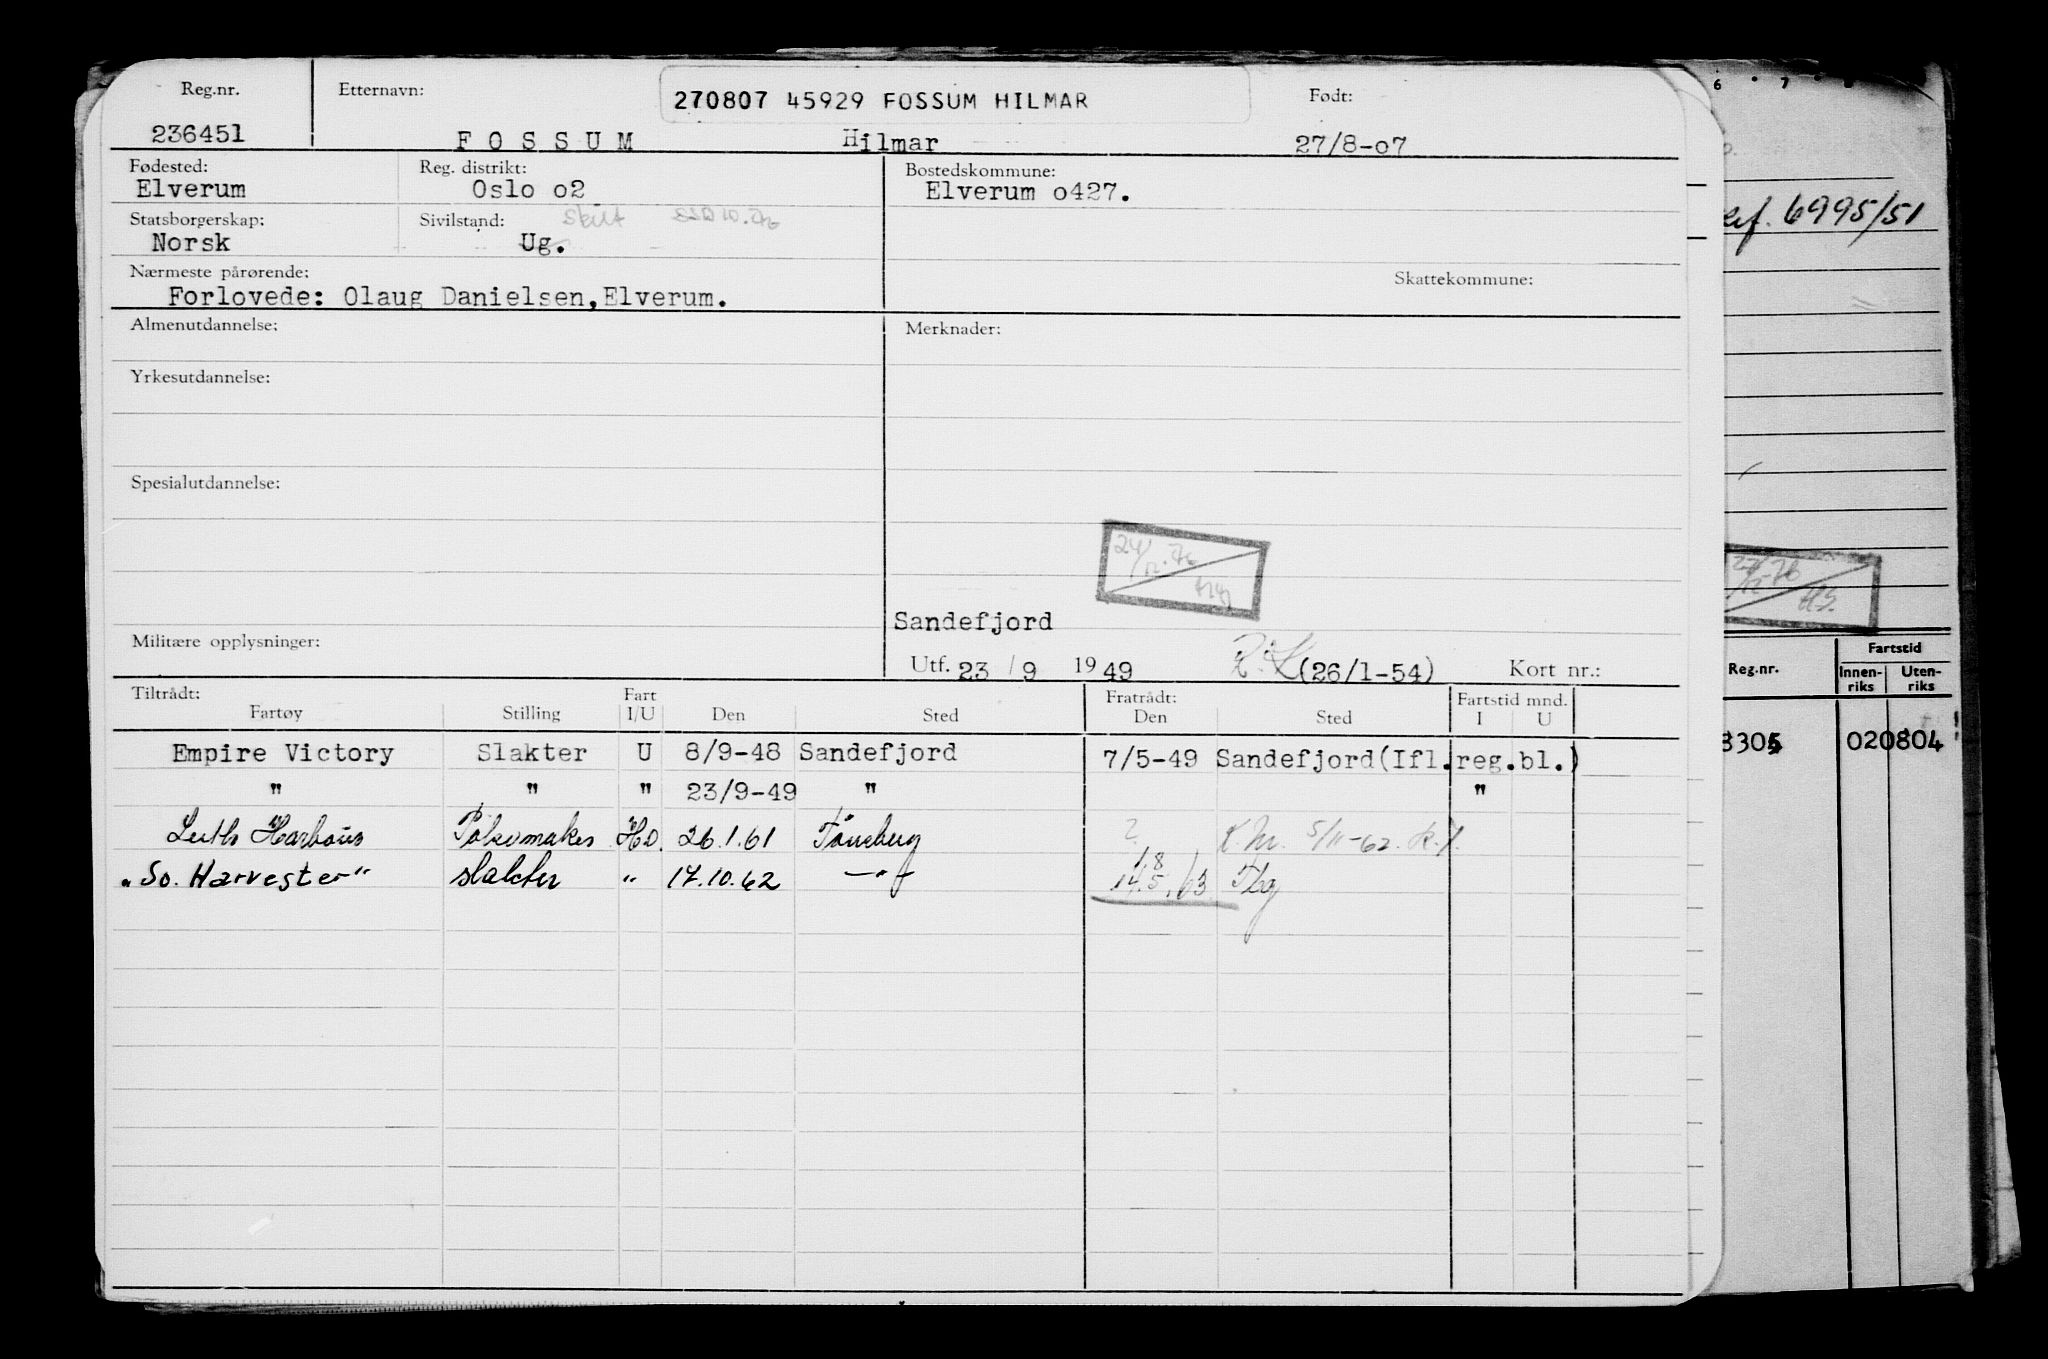 Reg.nr. Etternavn: 270807 45929 FOSSUM HILMAR Født:
236451 F O S S U M Hilmar 27/8-o7
Fødested: Reg. distrikt: Bostedskommune:
Elverum Oslo o2 Elverum o427.
Statsborgerskap: Sivilstand: Skilt
Norsk Ug.
Nærmeste pårørende: Skattekommune:
Forlovede: Olaug Danielsen, Elverum.
Almenutdannelse: Merknader:
Yrkesutdannelse:
Spesialutdannelse:
Sandefjord
Militære opplysninger:
Utf. 23 / 9 19 49 (26/1-54) Kort nr.:
Tiltrådt: Fart Fratrådt: Fartstid mnd.
Fartøy Stilling I/U Den Sted Den Sted I U
Empire Victory Slakter U 8/9-48 Sandefjord 7/5-49 Sandefjord(Ifl.reg.bl.)
" " " 23/9-49 " "
Leith Harbour 26.1.61 Tönsberg ? 5/11-62
"So. Harvester" slakter " 17.10.62 — " — 63 Tbg
6 7 8
6995/51
Fartstid
Reg.nr. Innen-riks Uten-riks
020804